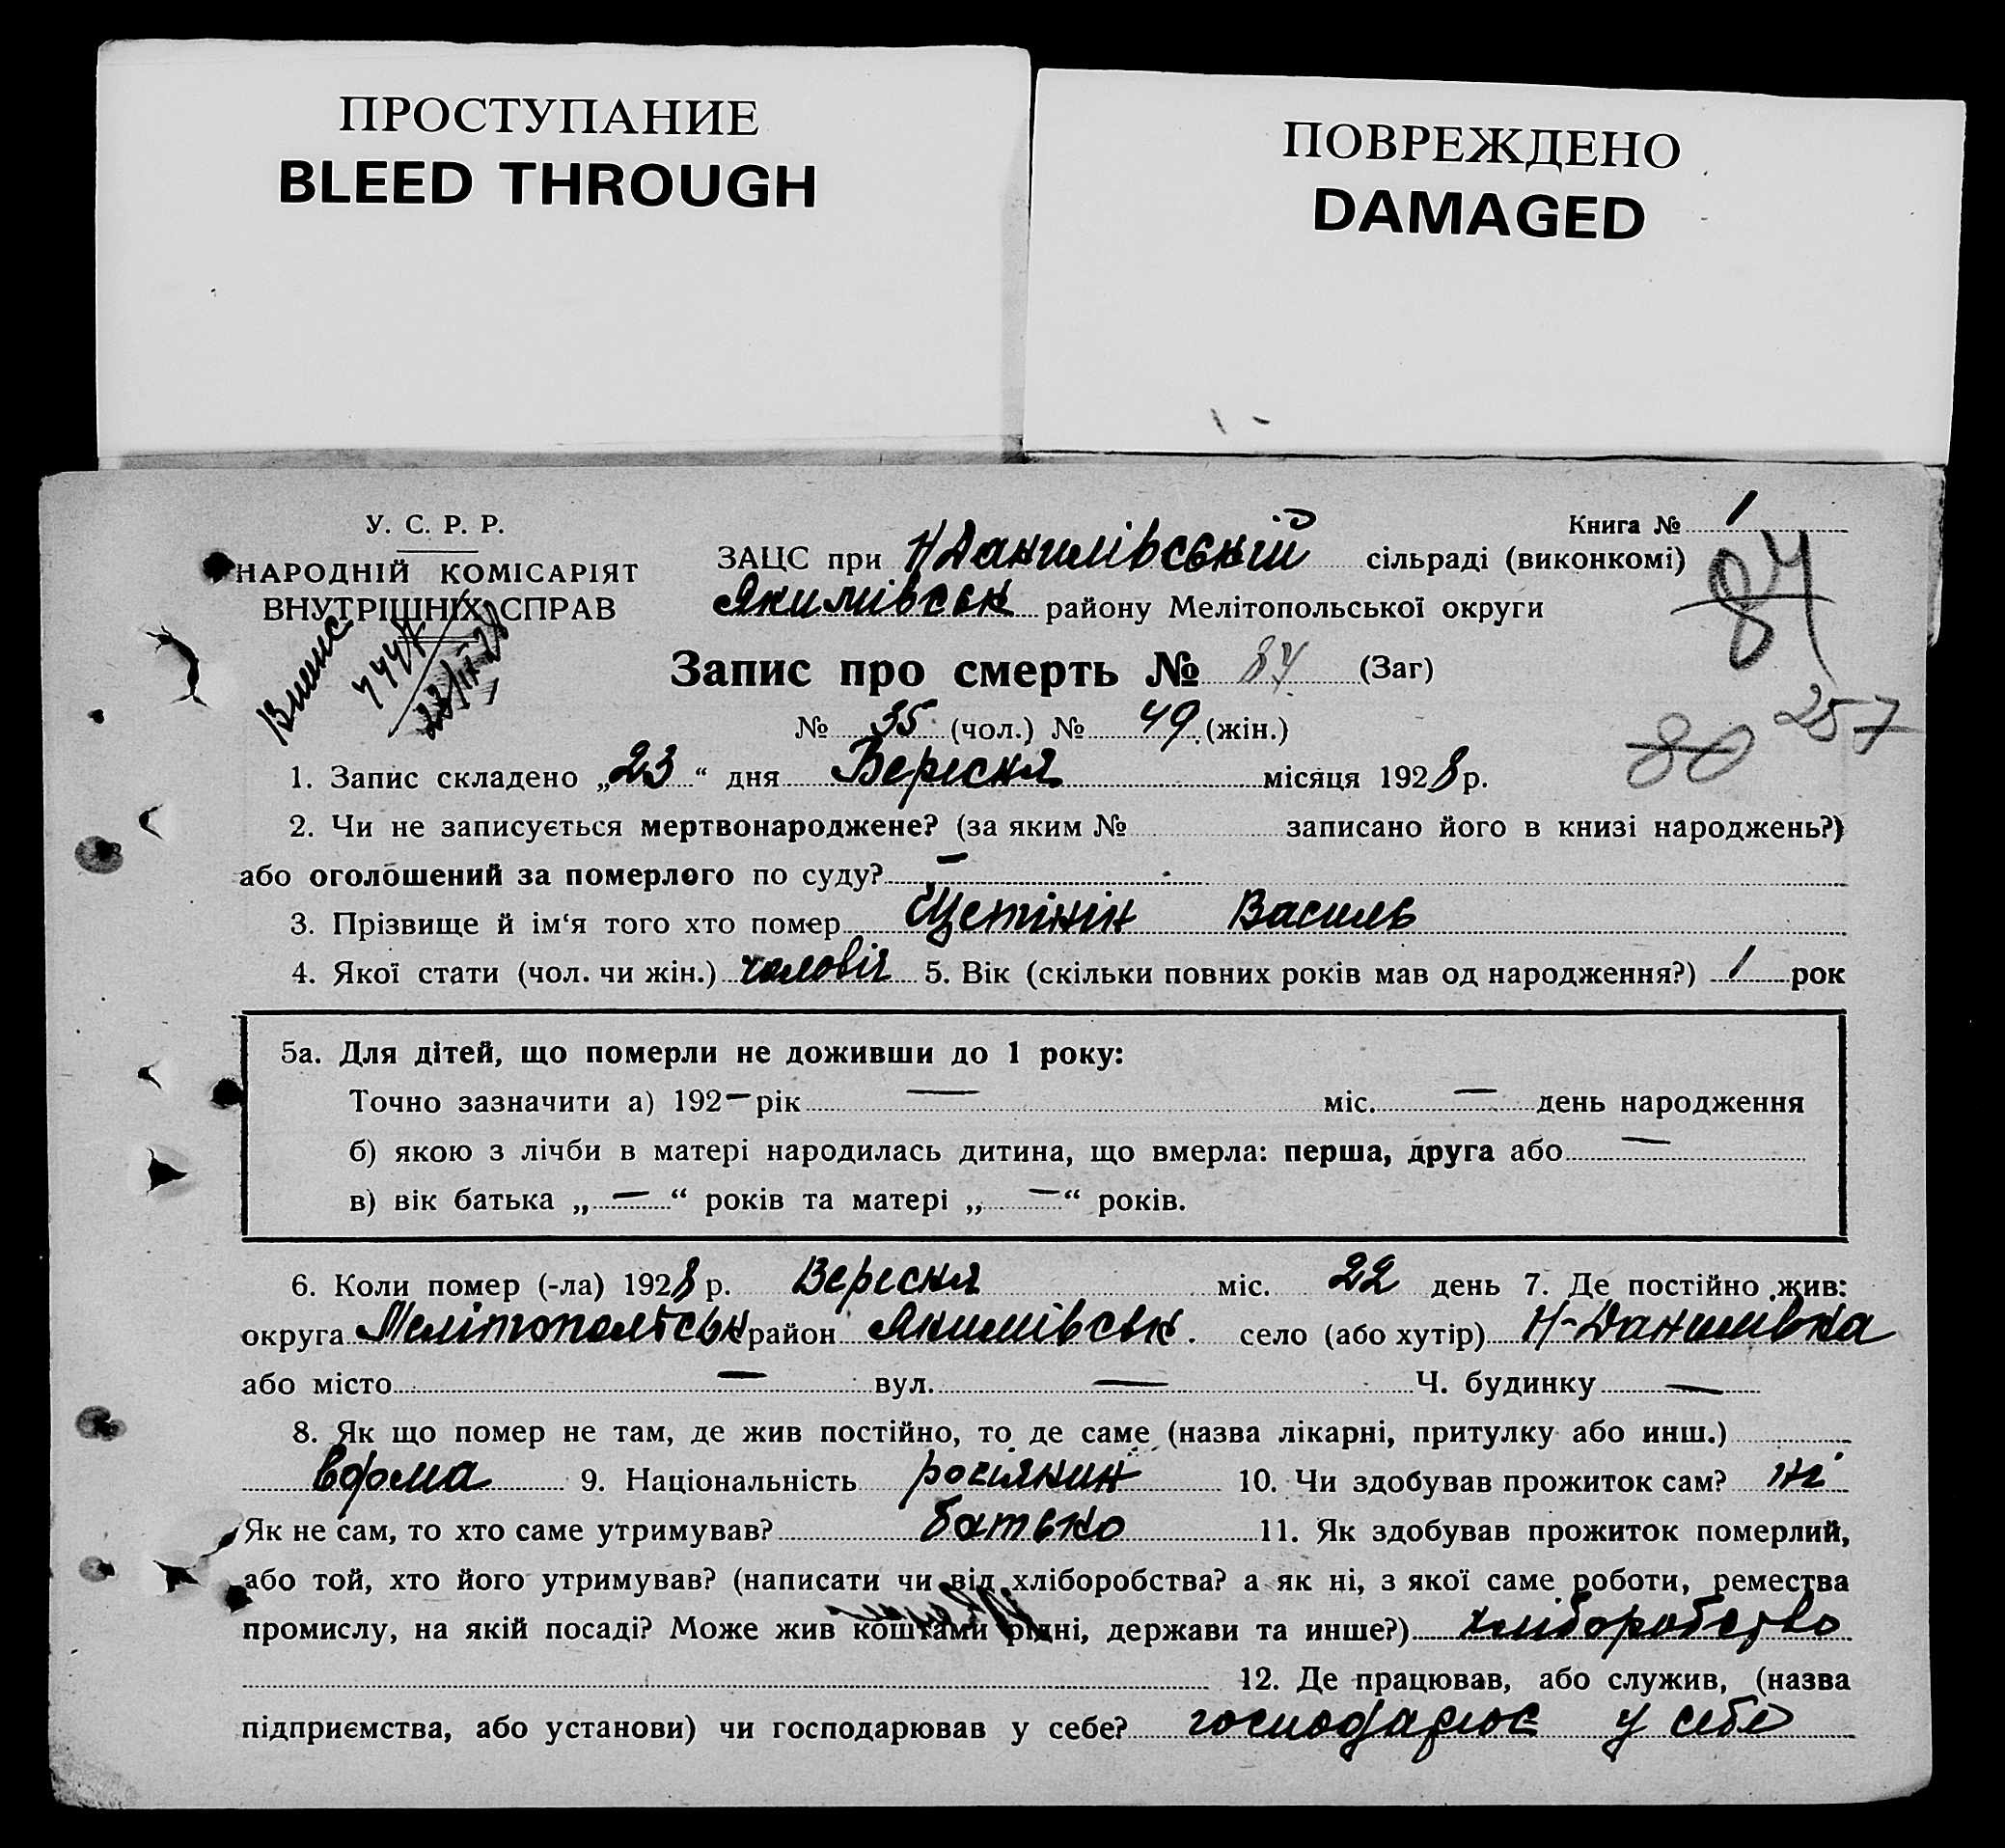 ПРОСТУПАНИЕ
BLEED THROUGH
ПОВРЕЖДЕНО
DAMAGED
У. С. Р. Р.
НАРОДНІЙ КОМІСАРІЯТ
ВНУТРІШНІХ СПРАВ
Книга № 1
ЗАЦС при Н Данилівській сільраді (виконкомі)
Якимівськ району Мелітопольської округи
84
Запис про смерть № 84 (Заг)
№ 35 (чол.) № 49 (жін.)
80 257
1. Запис складено „23“ дня Вересня місяця 1928 р.
2. Чи не записується мертвонароджене? (за яким № записано його в книзі народжень?)
або оголошений за померлого по суду? —
3. Прізвище й ім‘я того хто помер Щетінін Василь
4. Якої стати (чол. чи жін.) чоловіч 5. Вік (скільки повних років мав од народження?) 1 рок
5а. Для дітей, що померли не доживши до 1 року:
Точно зазначити а) 192— рік — міс. — день народження
б) якою з лічби в матері народилась дитина, що вмерла: перша, друга або —
в) вік батька „—“ років та матері „—“ років.
6. Коли помер (-ла) 1928 р. Вересня міс. 22 день 7. Де постійно жив:
округа Мелітопольськ район Якимівськ. село (або хутір) Н-Данилівка
або місто — вул. — Ч. будинку —
8. Як що помер не там, де жив постійно, то де саме (назва лікарні, притулку або инш.)
вдома 9. Національність росіянин 10. Чи здобував прожиток сам? ні
Як не сам, то хто саме утримував? батько 11. Як здобував прожиток померлий,
або той, хто його утримував? (написати чи від хліборобства? а як ні, з якої саме роботи, ремества
промислу, на якій посаді? Може жив коштами рідні, держави та инше?) хліборобство
12. Де працював, або служив, (назва
підприємства, або установи) чи господарював у себе? господарює у себе